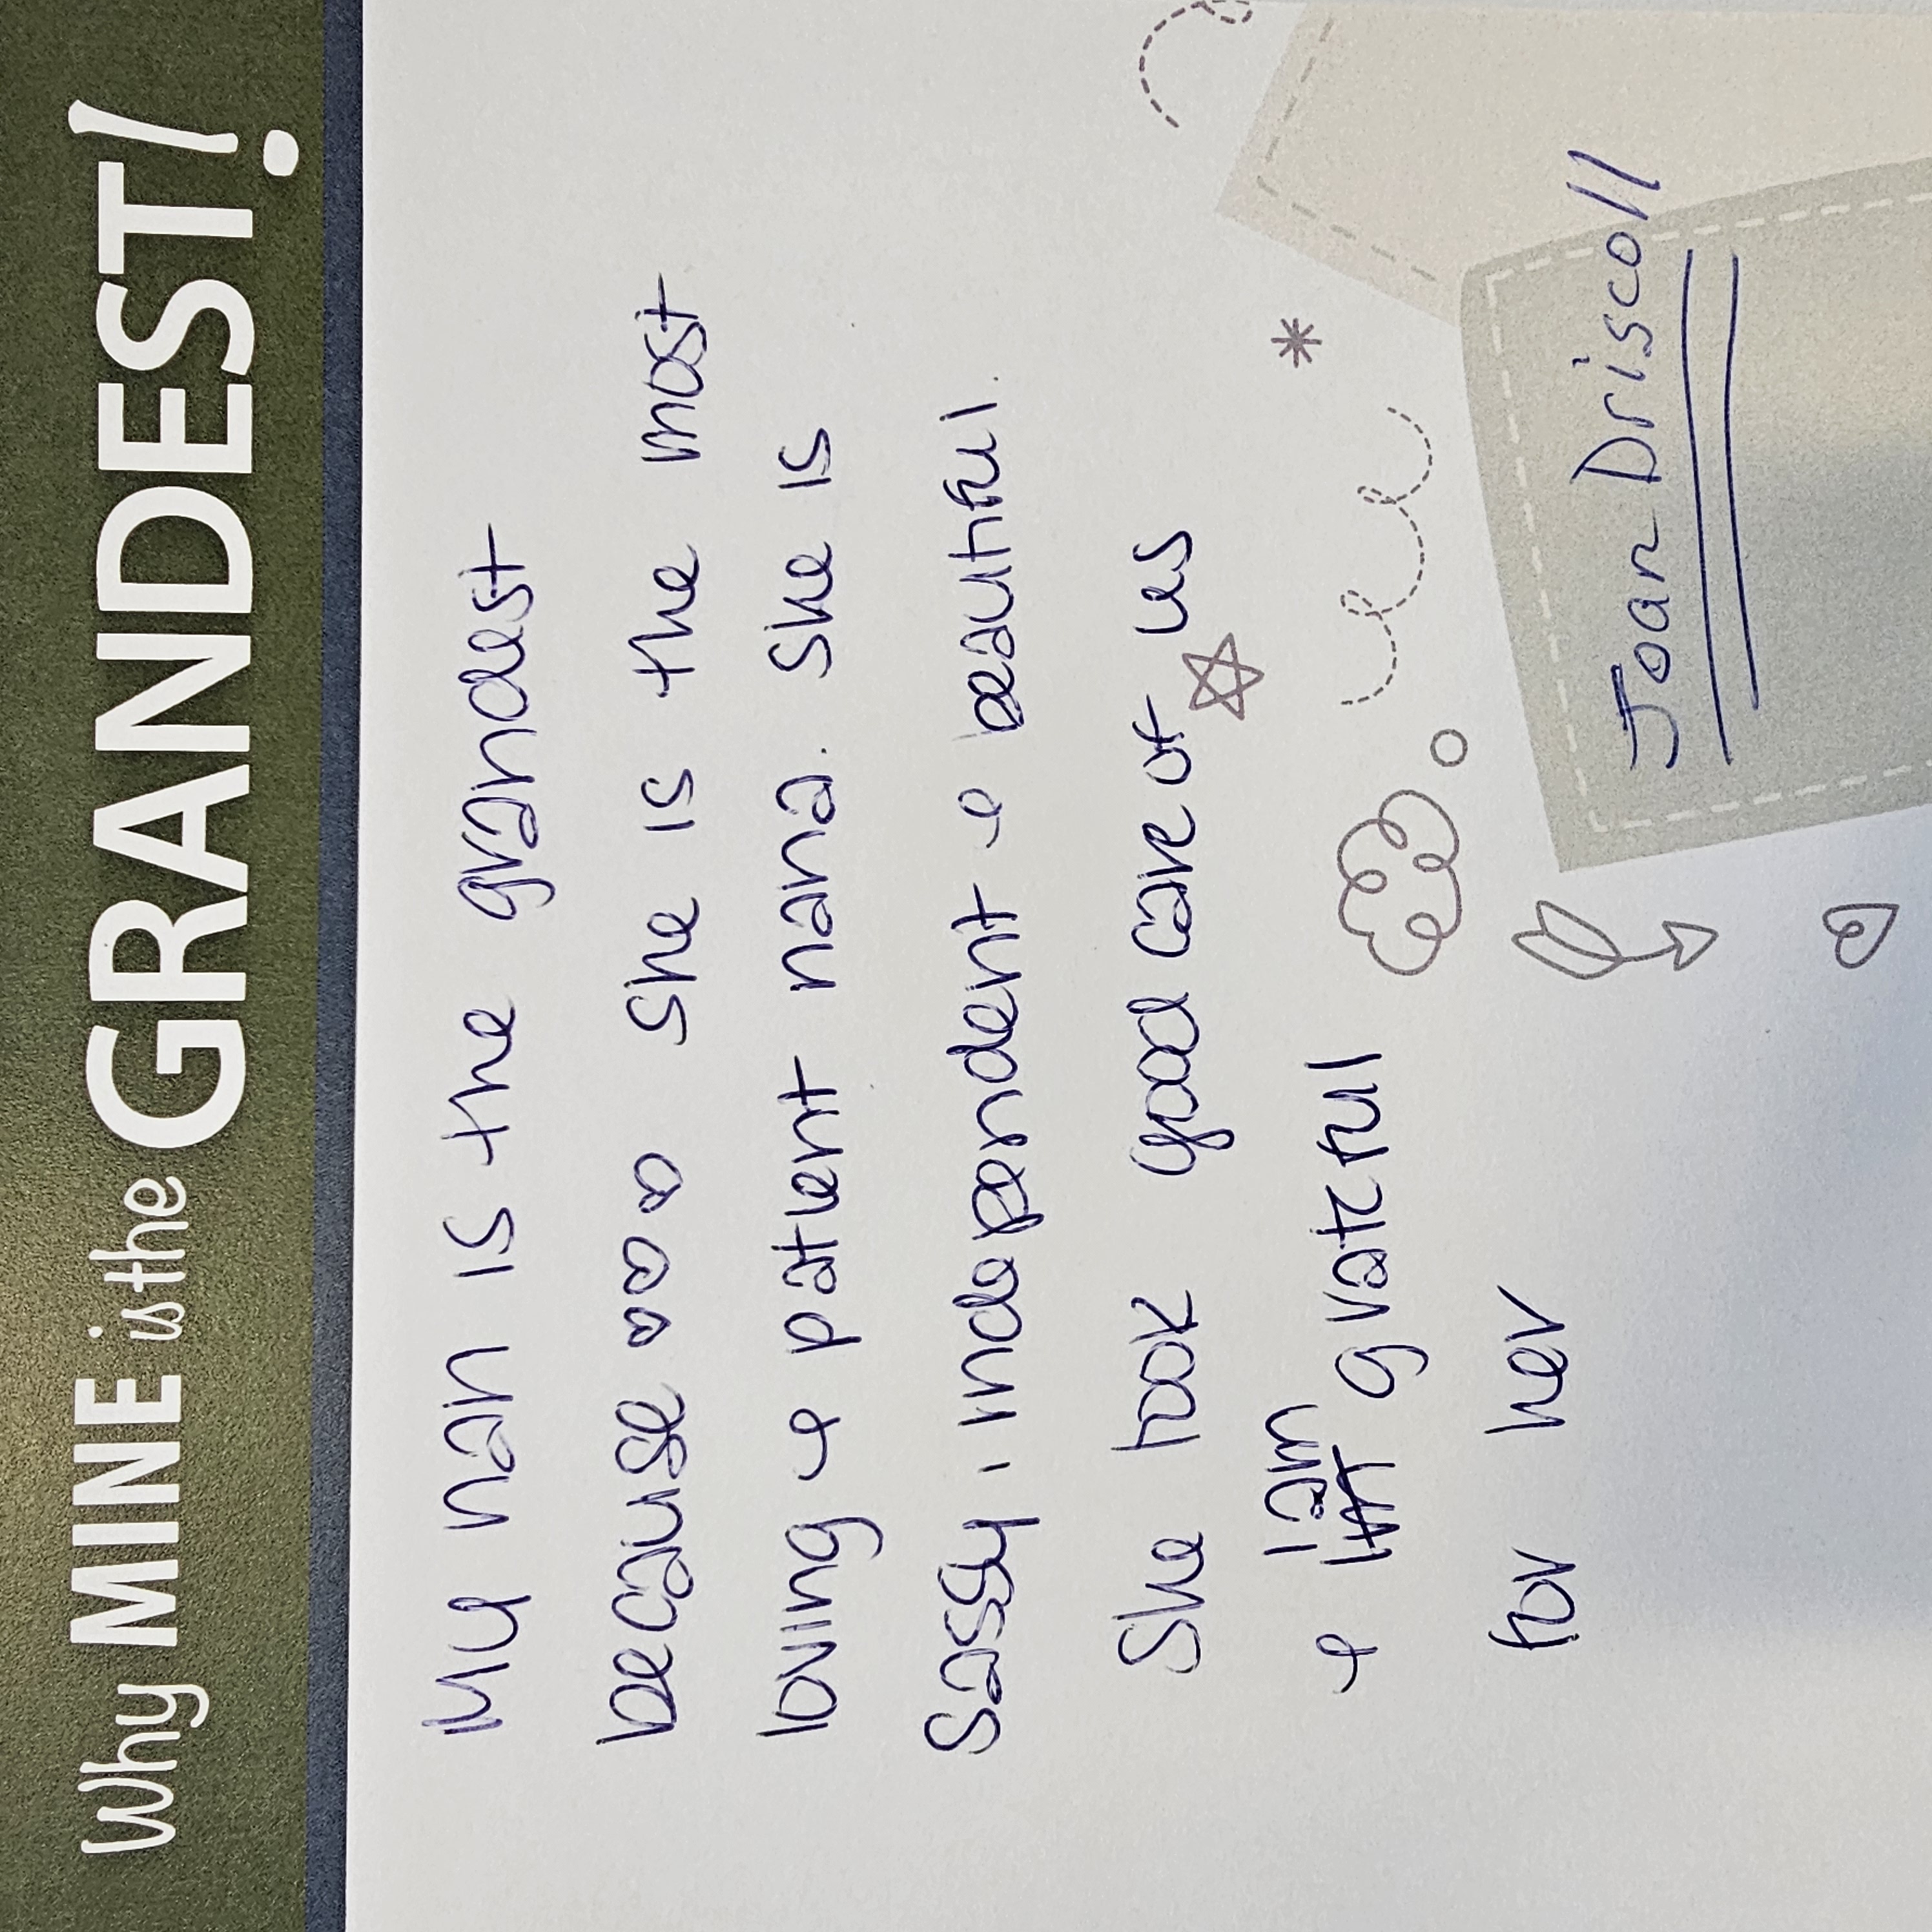 Why MINE is the GRANDEST!
My nan is the grandest
because ♡♡♡ she is the most
loving & patient nana. She is
Sassy, independent & beautiful.
She took good care of us
I am
& grateful
for her
Joan Driscoll